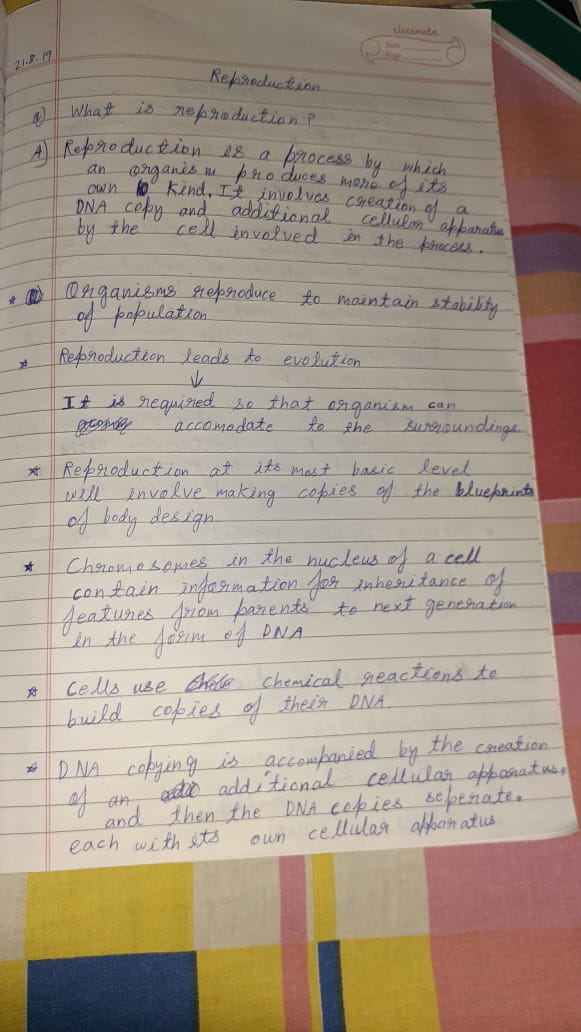 classmate
Date
Page
21.8.19
Reproduction
Q) What is reproduction?
A) Reproduction is a process by which
an organism produces more of its
own kind. It involves creation of a
DNA copy and additional cellular apparatus
by the cell involved in the process.
* Organisms reproduce to maintain stability
of population
* Reproduction leads to evolution
↓
It is required so that organism can
accomodate to the surroundings
* Reproduction at its most basic level
will involve making copies of the blueprints
of body design
* Chromosomes in the nucleus of a cell
contain information for inheritance of
features from parents to next generation
in the form of DNA
* Cells use chemical reactions to
build copies of their DNA.
* DNA copying is accompanied by the creation
of an additional cellular apparatus,
and then the DNA copies seperate.
each with its own cellular apparatus